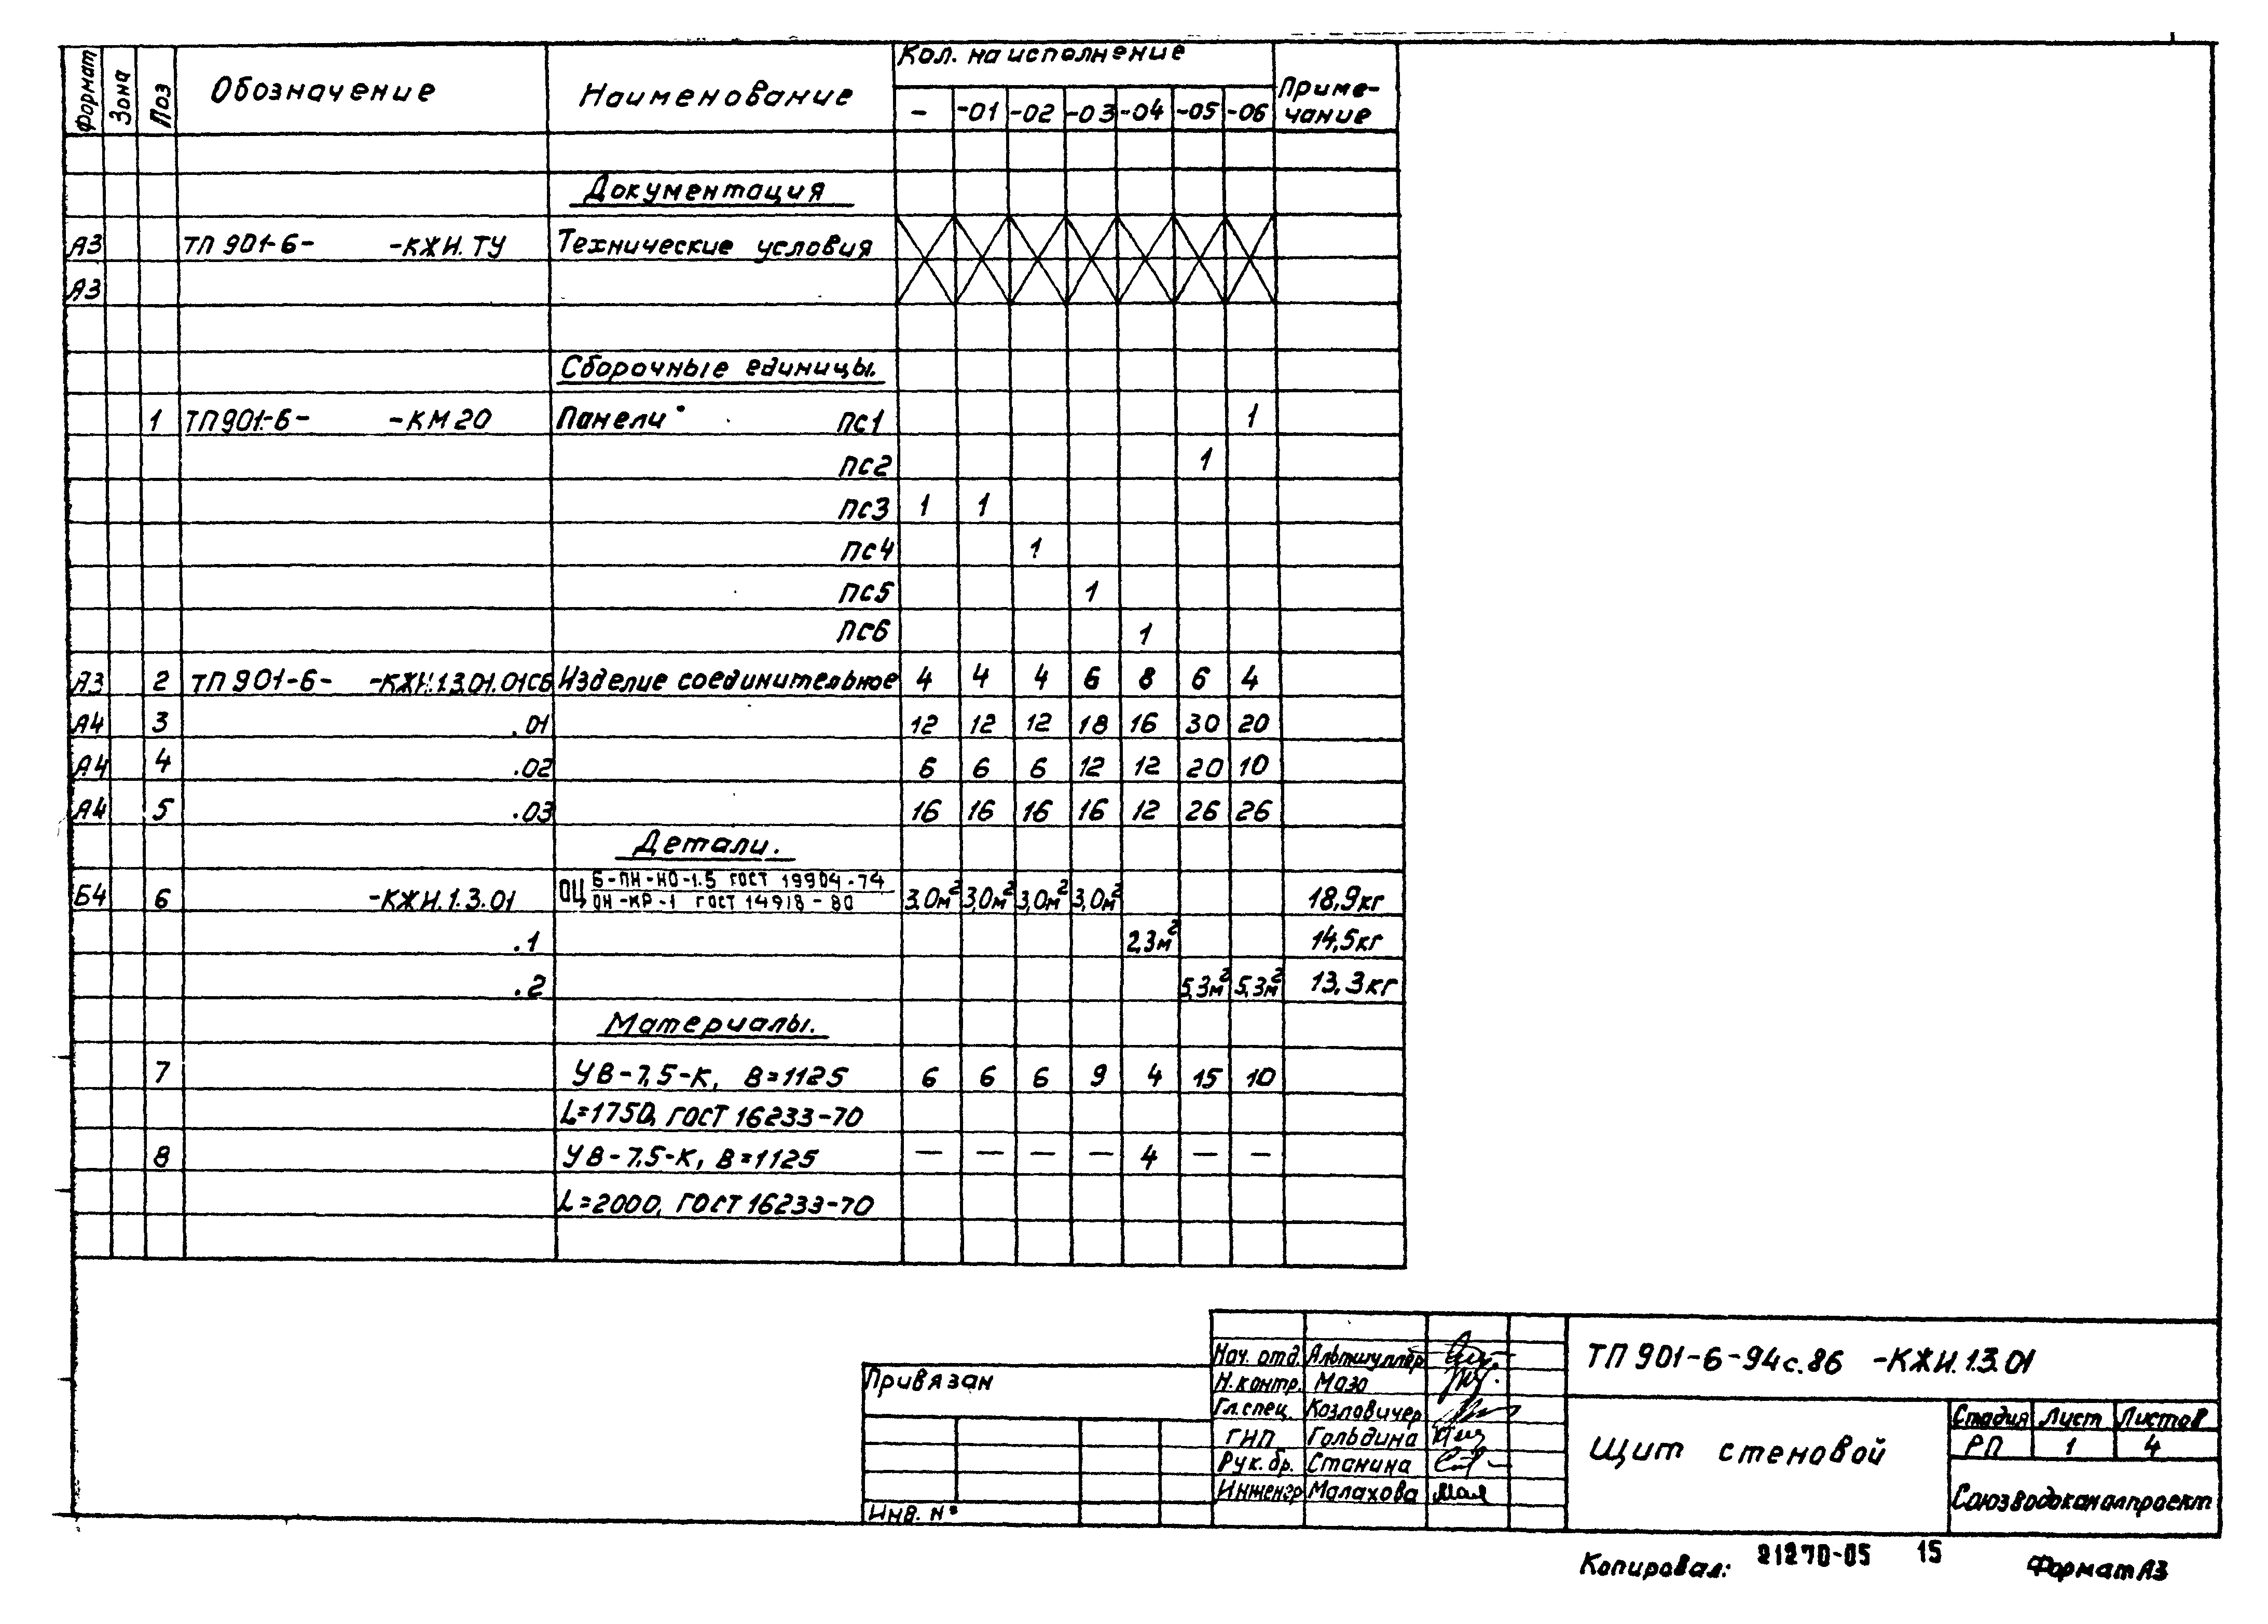 Формат Зона Поз Обозначение Наименование Кол. на исполнение Приме-
чание
- -01 -02 -03 -04 -05 -06
Документация
А3 ТП 901-6- -КЖИ.ТУ Технические условия
А3
Сборочные единицы.
1 ТП 901-6- -КМ 20 Панели ПС1 1
ПС2 1
ПС3 1 1
ПС4 1
ПС5 1
ПС6 1
А3 2 ТП 901-6- -КЖИ.1.3.01.01СБ Изделие соединительное 4 4 4 6 8 6 4
А4 3 .01 12 12 12 18 16 30 20
А4 4 .02 6 6 6 12 12 20 10
А4 5 .03 16 16 16 16 12 26 26
Детали.
Б4 6 -КЖИ.1.3.01 ОЦ Б-ПН-НО-1.5 ГОСТ 19904-74 3,0м² 3,0м² 3,0м² 3,0м² 18,9кг
ОН-КР-1 ГОСТ 14918-80
.1 2,3м² 14,5кг
.2 5,3м² 5,3м² 13,3кг
Материалы.
7 УВ-7,5-К, В=1125 6 6 6 9 4 15 10
L=1750, ГОСТ 16233-70
8 УВ-7,5-К, В=1125 — — — — 4 — —
L=2000, ГОСТ 16233-70
Привязан
Инв. №
Нач. отд. Альтшуллер
Н.контр. Мазо
Гл.спец. Козловичер
ГИП Гольдина
Рук. бр. Станина
Инженер Малахова Мал
ТП 901-6-94с.86 -КЖИ.1.3.01
Щит стеновой
Стадия Лист Листов
РП 1 4
Союзводоканалпроект
Копировал: 21270-05 15 Формат А3